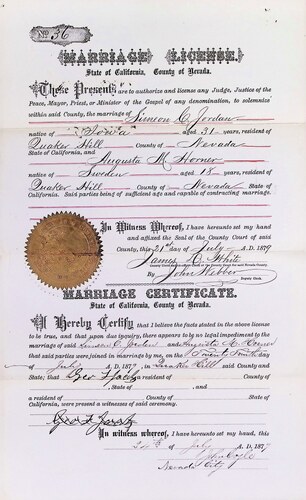 No. 36
MARRIAGE LICENSE.
State of California, County of Nevada.
These Present are to authorize and license any Judge, Justice of the
Peace, Mayor, Priest, or Minister of the Gospel of any denomination, to solemnize
within said County, the marriage of Simeon C. Jordan
native of "Iowa" aged 31 years, resident of
Quaker Hill County of Nevada
State of California, and Augusta M Horner
native of Sweden aged 18 years, resident of
Quaker Hill County of Nevada State of
California. Said parties being of sufficient age and capable of contracting marriage.
In Witness Whereof, I have hereunto set my hand
and affixed the Seal of the County Court of said
County, this 21st day of July A.D. 1879
James D. White
By John Webber
Deputy Clerk.
MARRIAGE CERTIFICATE.
State of California, County of Nevada.
I Hereby Certify that I believe the facts stated in the above license
to be true, and that upon due inquiry, there appears to be no legal impediment to the
marriage of Simeon C. Jordan and Augusta M. Horner
that said parties were joined in marriage by me, on the Twenty Fourth day
of July A.D. 1879, in Quaker Hill said County
and State; that Geo
a resident of County of
and
a resident of County of
California, were present as witnesses of said ceremony.
Geo F
In witness whereof, I have hereunto set my hand, this
day of July A.D. 1879
Nevada City